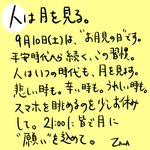 人は月を見る。
9月10日(土)は、"お月見の日"です。
平安時代から続く、この習慣。
人はいつの時代も、月を見ます。
悲しい時も。辛い時も。うれしい時も。
スマホを眺めるのを少しお休み
して。21:00に皆で月に
"願い"を込めて。